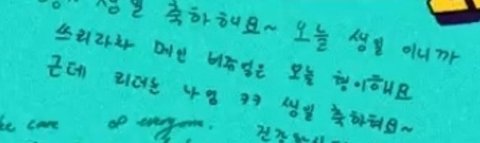 생일 축하해요~ 오늘 생일 이니까
쓰리라차 메인 비주얼은 오늘 형이해요
근데 리더는 나임 ㅋㅋ 생일 축하해요~
care of everyone.
건강